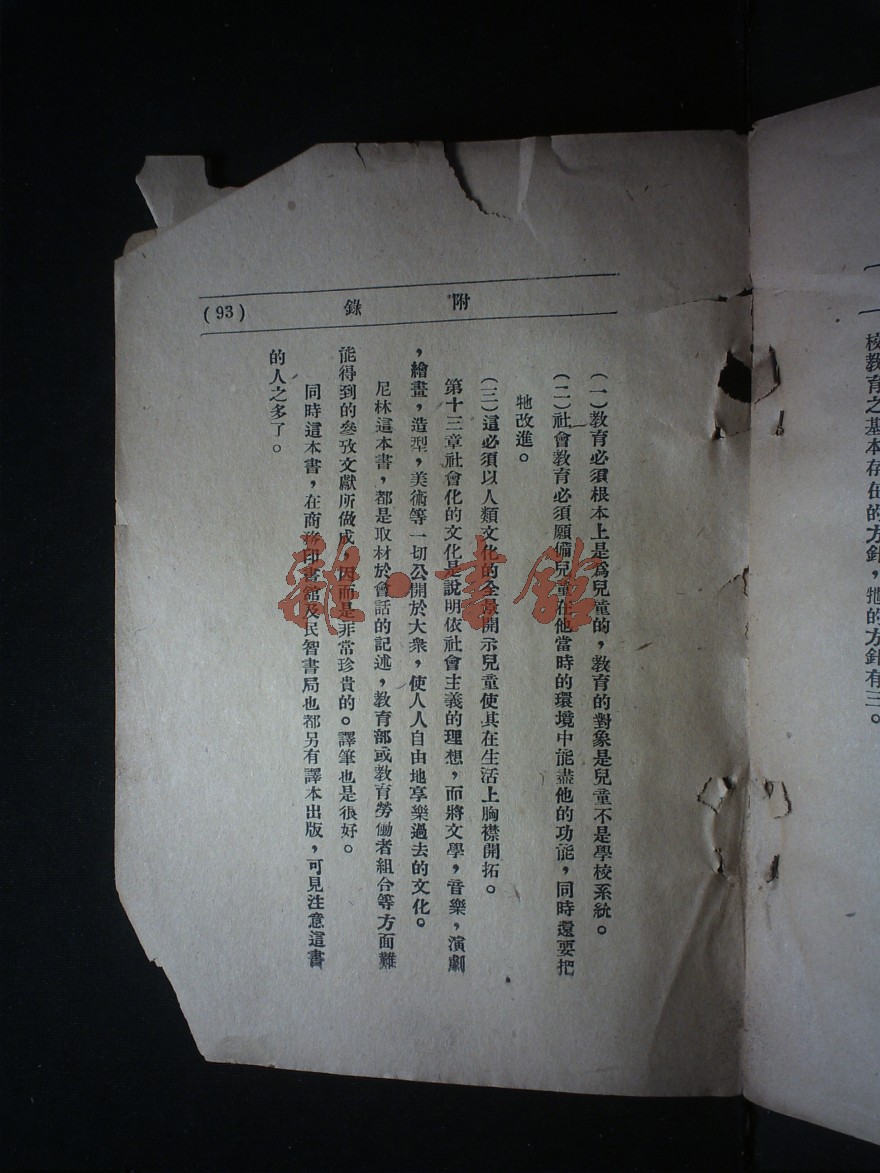 校教育之基本存在的方針，牠的方針有三。
附錄
(93)
(一)教育必須根本上是爲兒童的，教育的對象是兒童不是學校系統。
(二)社會教育必須願備兒童在他當時的環境中能盡他的功能，同時還要把
牠改進。
(三)這必須以人類文化的全景開示兒童使其在生活上胸襟開拓。
第十三章社會化的文化是說明依社會主義的理想，而將文學，音樂，演劇
，繪畫，造型，美術等一切公開於大衆，使人人自由地享樂過去的文化。
尼林這本書，都是取材於會話的記述，教育部或教育勞働者組合等方面難
能得到的參攷文獻所做成，因而是非常珍貴的。譯筆也是很好。
同時這本書，在商務印書館及民智書局也都另有譯本出版，可見注意這書
的人之多了。
雜·書館